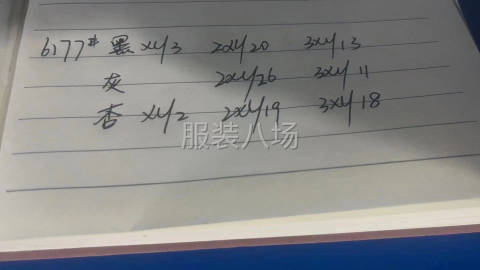 6177# 黑 XXL/3 2XXL/20 3XXL/13
灰 2XXL/26 3XXL/11
杏 XXL/2 2XXL/19 3XXL/18
服装八场